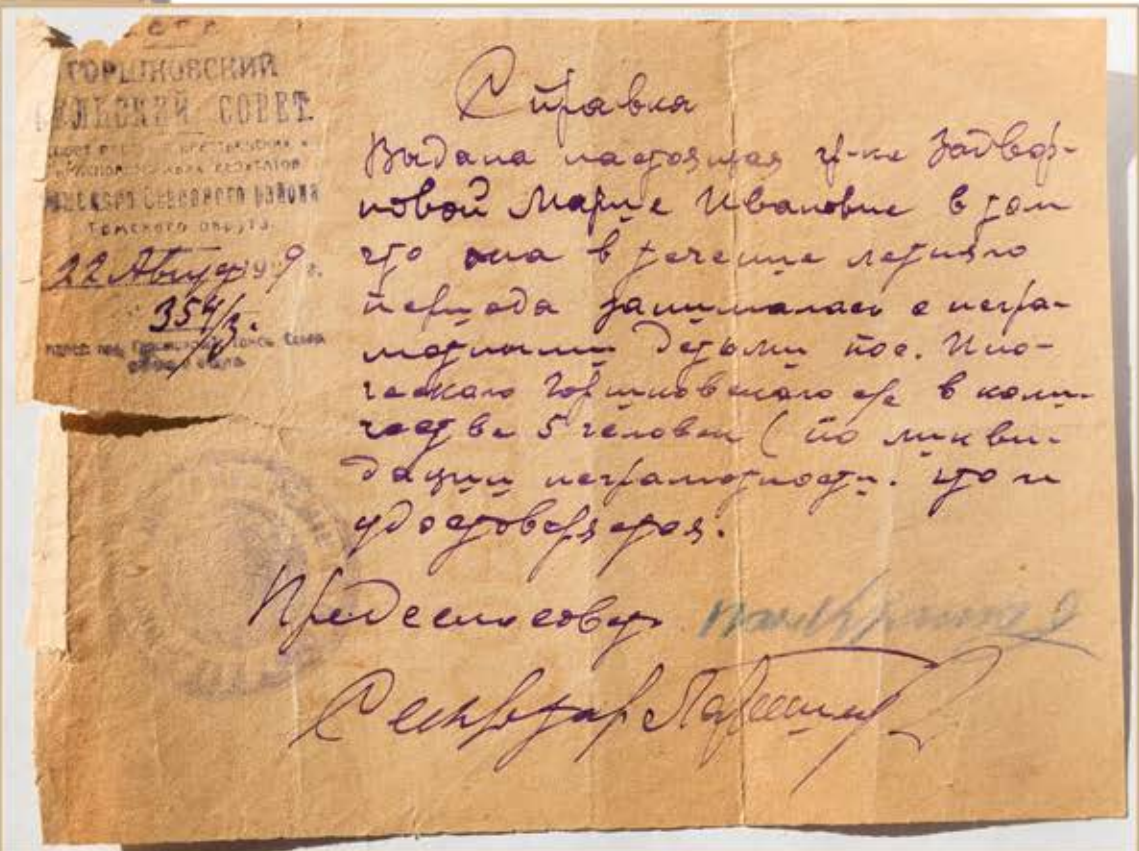 ГОРШКОВСКИЙ
СЕЛЬСКИЙ СОВЕТ
Северного района
Томского округа
22 Август 1929 г.
354/3.
Справка
Выдана настоящая г-ке Задвор-
новой Марие Ивановне в том
что она в течение летняго
периода занималась с негра-
мотными детьми пос.
Горшковскаго с/с в коли-
честве 5 человек ( по ликви-
дации неграмотности. что и
удостоверяется.
Предсельсовет
Секретарь